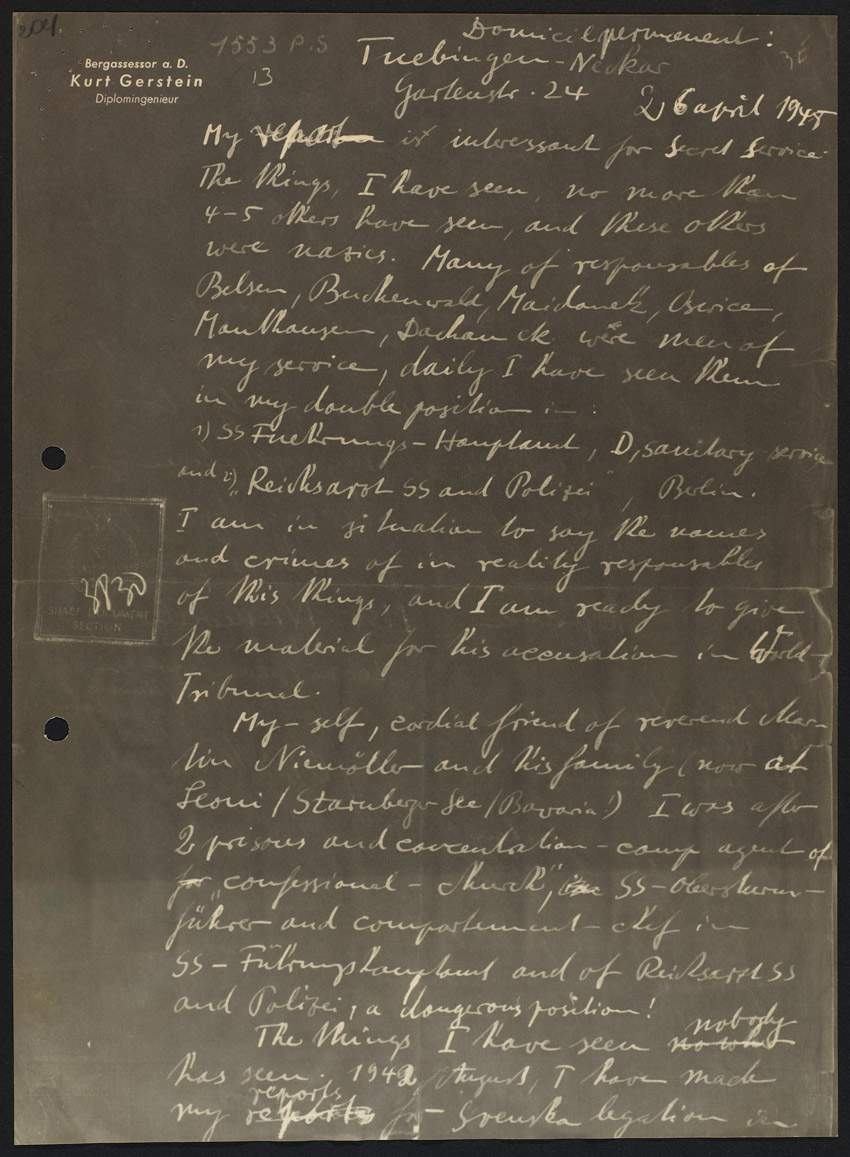 204
1553 P.S
13
Bergassessor a. D.
Kurt Gerstein
Diplomingenieur
Domicil permanent:
Tuebingen-Neckar
Gartenstr. 24
26 april 1945
My report is interessant for Secret Service.
The things, I have seen, no more than
4-5 others have seen, and these others
were nazies. Many of responsables of
Belsen, Buchenwald, Maidanek, Oswice,
Mauthausen, Dachau etc. were men of
my service, daily I have seen them
in my double position in:
1) SS Fuehrungs-Hauptamt, D, sanitary-service
and 2) "Reichsarzt SS and Polizei", Berlin.
I am in situation to say the names
and crimes of in reality responsables
of this things, and I am ready to give
the material for this accusation in World-
Tribunal.
My-self, cordial friend of reverend Mar-
tin Niemöller and his family (now at
Leoni / Starnberger See / Bavaria!) I was after
2 prisons and concentration-camp agent of
for "confessional-church", SS-Obersturm-
führer and compartement-chef in
SS-Führungshauptamt and of Reichsarzt SS
and Polizei, a dangerous position!
The things I have seen nobody
has seen. 1942, August, I have made
my reports for Svenska legation in
3930
DOCUMENT
SECTION